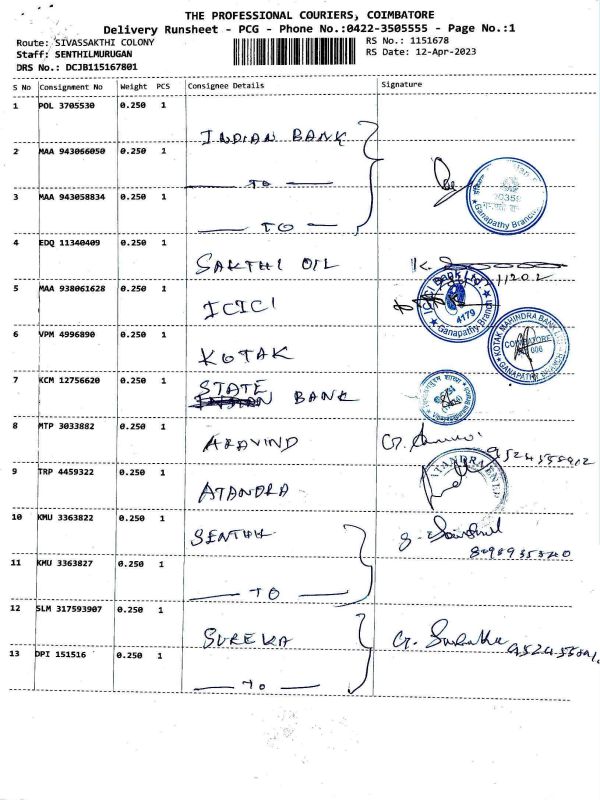 THE PROFESSIONAL COURIERS, COIMBATORE
Delivery Runsheet - PCG - Phone No.:0422-3505555 - Page No.:1
Route: SIVASSAKTHI COLONY
RS No.: 1151678
Staff: SENTHILMURUGAN
RS Date: 12-Apr-2023
DRS No.: DCJB115167801
S No Consignment No Weight PCS Consignee Details Signature
1 POL 3705530 0.250 1 INDIAN BANK
2 MAA 943066050 0.250 1 TO
3 MAA 943058834 0.250 1 TO
Ganapathy Branch
4 EDQ 11340409 0.250 1 SAKTHI OIL
5 MAA 938061628 0.250 1 ICICI
ICICI BANK LTD.
4179
Ganapathy Branch
6 VPM 4996890 0.250 1 KOTAK
KOTAK MAHINDRA BANK
COIMBATORE
GANAPATHY BRANCH
7 KCM 12756620 0.250 1 STATE BANK
8 MTP 3033882 0.250 1 ARAVIND
9 TRP 4459322 0.250 1 ATANDRA
10 KMU 3363822 0.250 1 SENTHIL
11 KMU 3363827 0.250 1 TO
12 SLM 317593907 0.250 1 SUREKA
13 DPI 151516 0.250 1 TO